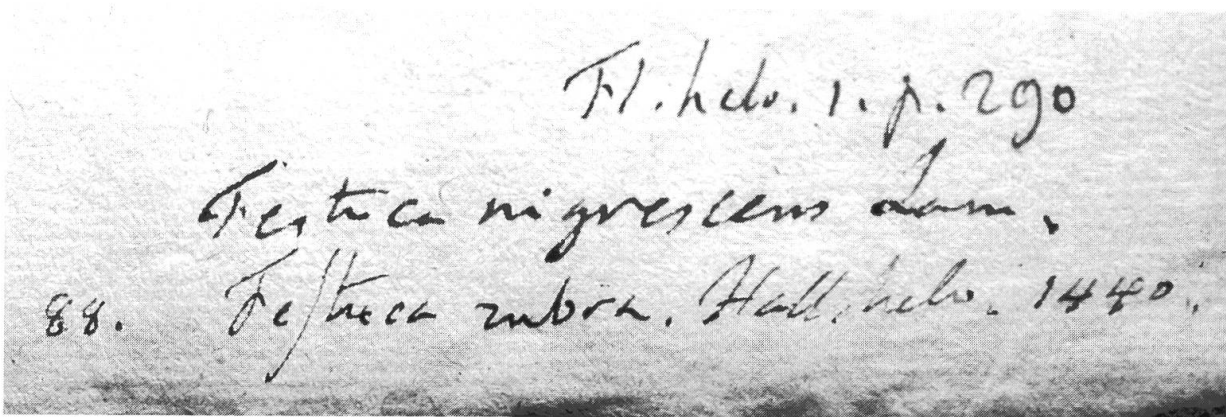 Fl. helv. 1. p. 290
Festuca nigrescens Lam.
88. Festuca rubra. Hall. helv. 1440.